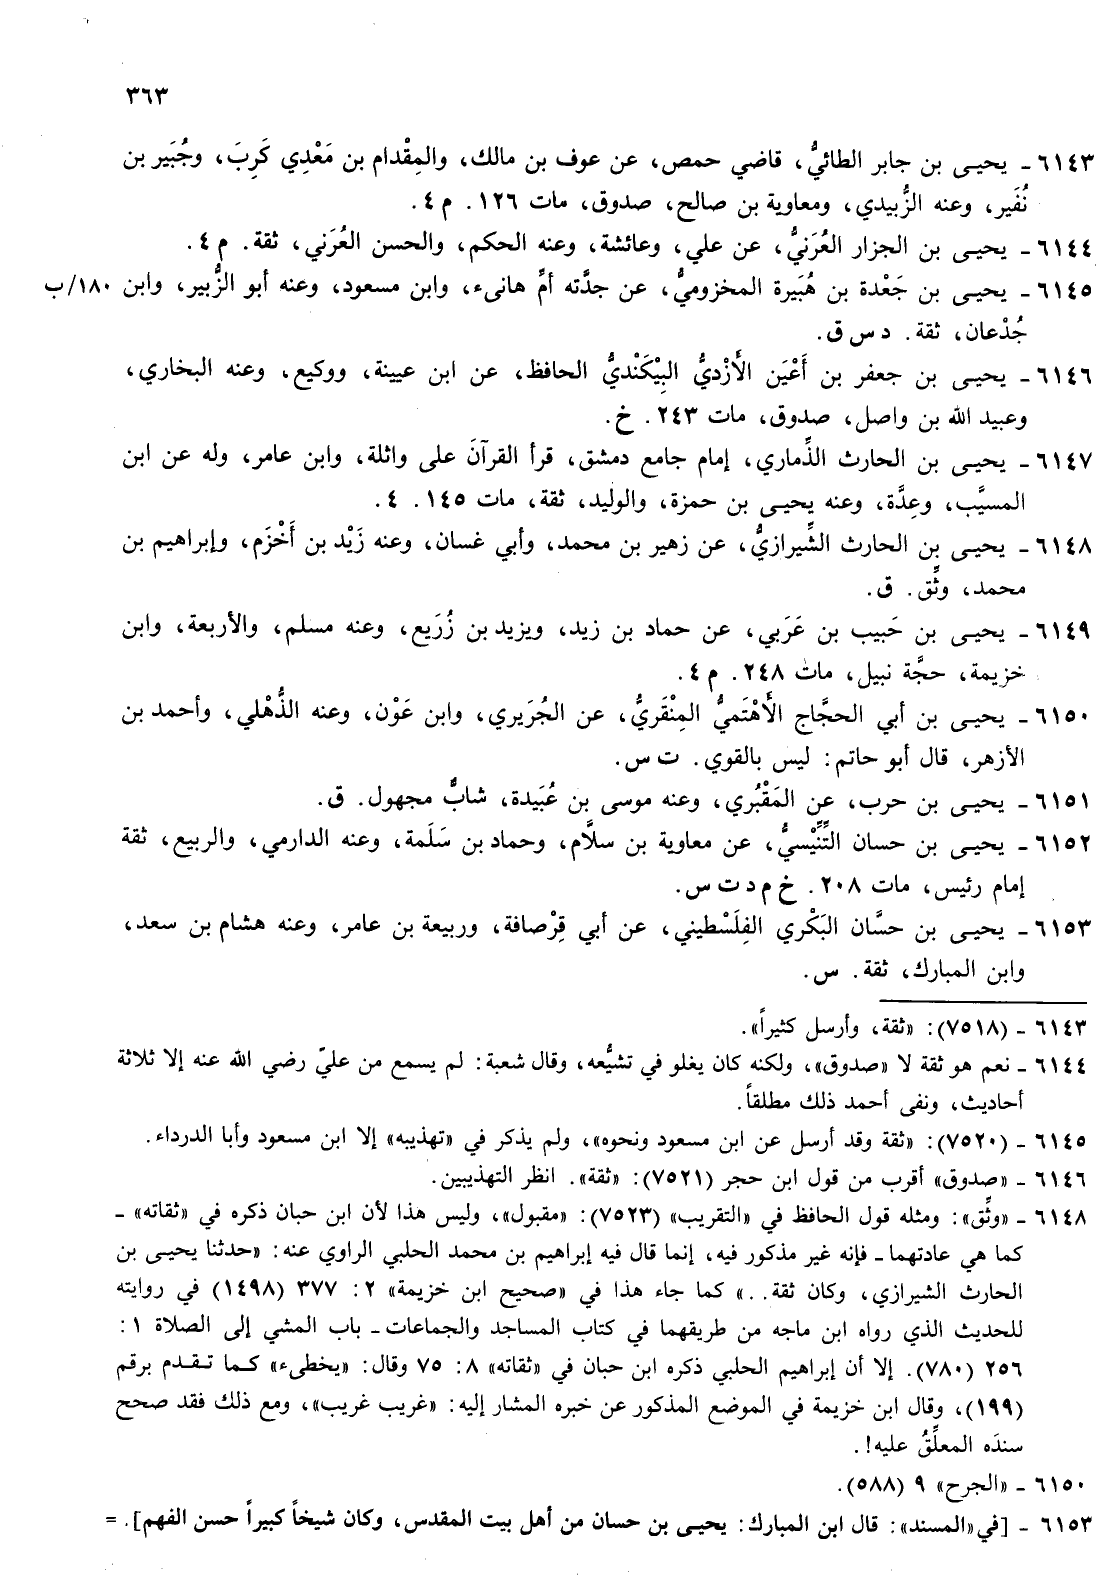 ٣٦٣
٦١٤٣ ـ يحيـى بن جابر الطائيُّ، قاضي حمص، عن عوف بن مالك، والمِقْدام بن مَعْدِي كَرِبَ، وجُبَير بن
نُفَير، وعنه الزُّبيدي، ومعاوية بن صالح، صدوق، مات ١٢٦. م ٤.
٦١٤٤ ـ يحيـى بن الجزار العُرَنيُّ، عن علي، وعائشة، وعنه الحكم، والحسن العُرَني، ثقة. م ٤.
٦١٤٥ ـ يحيـى بن جَعْدة بن هُبَيرة المخزوميُّ، عن جدَّته أمِّ هانىء، وابن مسعود، وعنه أبو الزُّبير، وابن ١٨٠/ب
جُدْعان، ثقة. د س ق.
٦١٤٦ ـ يحيـى بن جعفر بن أَعْيَن الأَزْديُّ البِيْكَنْديُّ الحافظ، عن ابن عيينة، ووكيع. وعنه البخاري،
وعبيد الله بن واصل، صدوق، مات ٢٤٣. خ.
٦١٤٧ ـ يحيـى بن الحارث الذِّماري، إمام جامع دمشق، قرأ القرآنَ على واثلة، وابن عامر، وله عن ابن
المسيَّب، وعِدَّة، وعنه يحيـى بن حمزة، والوليد، ثقة، مات ١٤٥. ٤.
٦١٤٨ ـ يحيـى بن الحارث الشِّيرازيُّ، عن زهير بن محمد، وأبي غسان، وعنه زَيْد بن أَخْزَم، وإبراهيم بن
محمد، وثِّق. ق.
٦١٤٩ ـ يحيـى بن حَبيب بن عَرَبي، عن حماد بن زيد، ويزيد بن زُرَيع، وعنه مسلم، والأربعة، وابن
خزيمة، حجَّة نبيل، مات ٢٤٨. م ٤.
٦١٥٠ ـ يحيـى بن أبي الحجَّاج الأَهْتَميُّ المِنْقَريُّ، عن الجُرَيري، وابن عَوْن، وعنه الذُّهْلي، وأحمد بن
الأزهر، قال أبو حاتم: ليس بالقوي. ت س.
٦١٥١ ـ يحيـى بن حرب، عن المَقْبُري، وعنه موسى بن عُبَيدة، شابٌّ مجهول. ق.
٦١٥٢ ـ يحيـى بن حسان التِّنِّيْسيُّ، عن معاوية بن سلاَّم، وحماد بن سَلَمة، وعنه الدارمي، والربيع، ثقة
إمام رئيس، مات ٢٠٨. خ م د ت س.
٦١٥٣ ـ يحيـى بن حسَّان البَكْري الفِلَسْطيني، عن أبي قِرْصافة، وربيعة بن عامر، وعنه هشام بن سعد،
وابن المبارك، ثقة. س.
٦١٤٣ ـ (٧٥١٨): «ثقة، وأرسل كثيراً».
٦١٤٤ ـ نعم هو ثقة لا «صدوق»، ولكنه كان يغلو في تشيُّعه، وقال شعبة: لم يسمع من عليّ رضي الله عنه إلا ثلاثة
أحاديث، ونفى أحمد ذلك مطلقاً.
٦١٤٥ ـ (٧٥٢٠): «ثقة وقد أرسل عن ابن مسعود ونحوه»، ولم يذكر في «تهذيبه» إلا ابن مسعود وأبا الدرداء.
٦١٤٦ ـ «صدوق» أقرب من قول ابن حجر (٧٥٢١): «ثقة». انظر التهذيبين.
٦١٤٨ ـ «وثِّق»: ومثله قول الحافظ في «التقريب» (٧٥٢٣): «مقبول»، وليس هذا لأن ابن حبان ذكره في «ثقاته» ـ
كما هي عادتهما ـ فإنه غير مذكور فيه، إنما قال فيه إبراهيم بن محمد الحلبي الراوي عنه: «حدثنا يحيـى بن
الحارث الشيرازي، وكان ثقة..» كما جاء هذا في «صحيح ابن خزيمة» ٢: ٣٧٧ (١٤٩٨) في روايته
للحديث الذي رواه ابن ماجه من طريقهما في كتاب المساجد والجماعات ـ باب المشي إلى الصلاة ١:
٢٥٦ (٧٨٠). إلا أن إبراهيم الحلبي ذكره ابن حبان في «ثقاته» ٨: ٧٥ وقال: «يخطىء» كـما تـقـدم برقم
(١٩٩)، وقال ابن خزيمة في الموضع المذكور عن خبره المشار إليه: «غريب غريب»، ومع ذلك فقد صحح
سندَه المعلِّقُ عليه!.
٦١٥٠ ـ «الجرح» ٩ (٥٨٨).
٦١٥٣ ـ [في «المسند»: قال ابن المبارك: يحيـى بن حسان من أهل بيت المقدس، وكان شيخاً كبيراً حسن الفهم]. =